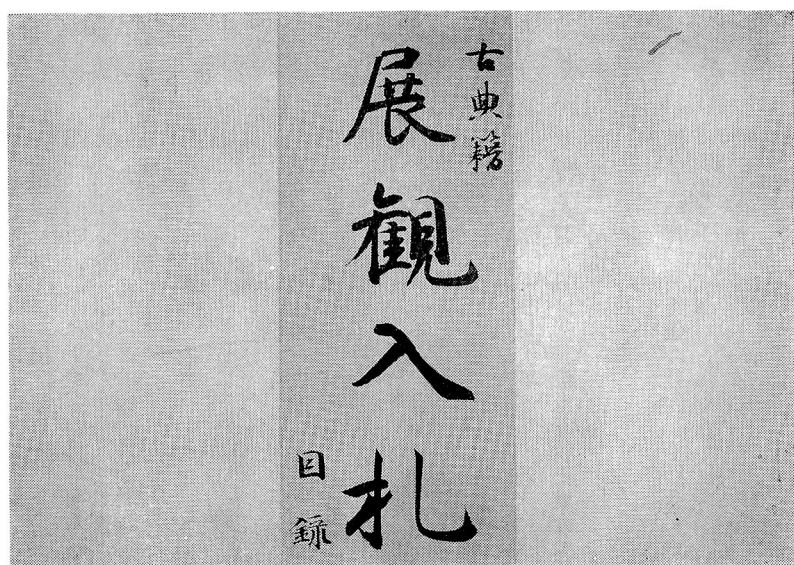 古典籍
展観入札
目録